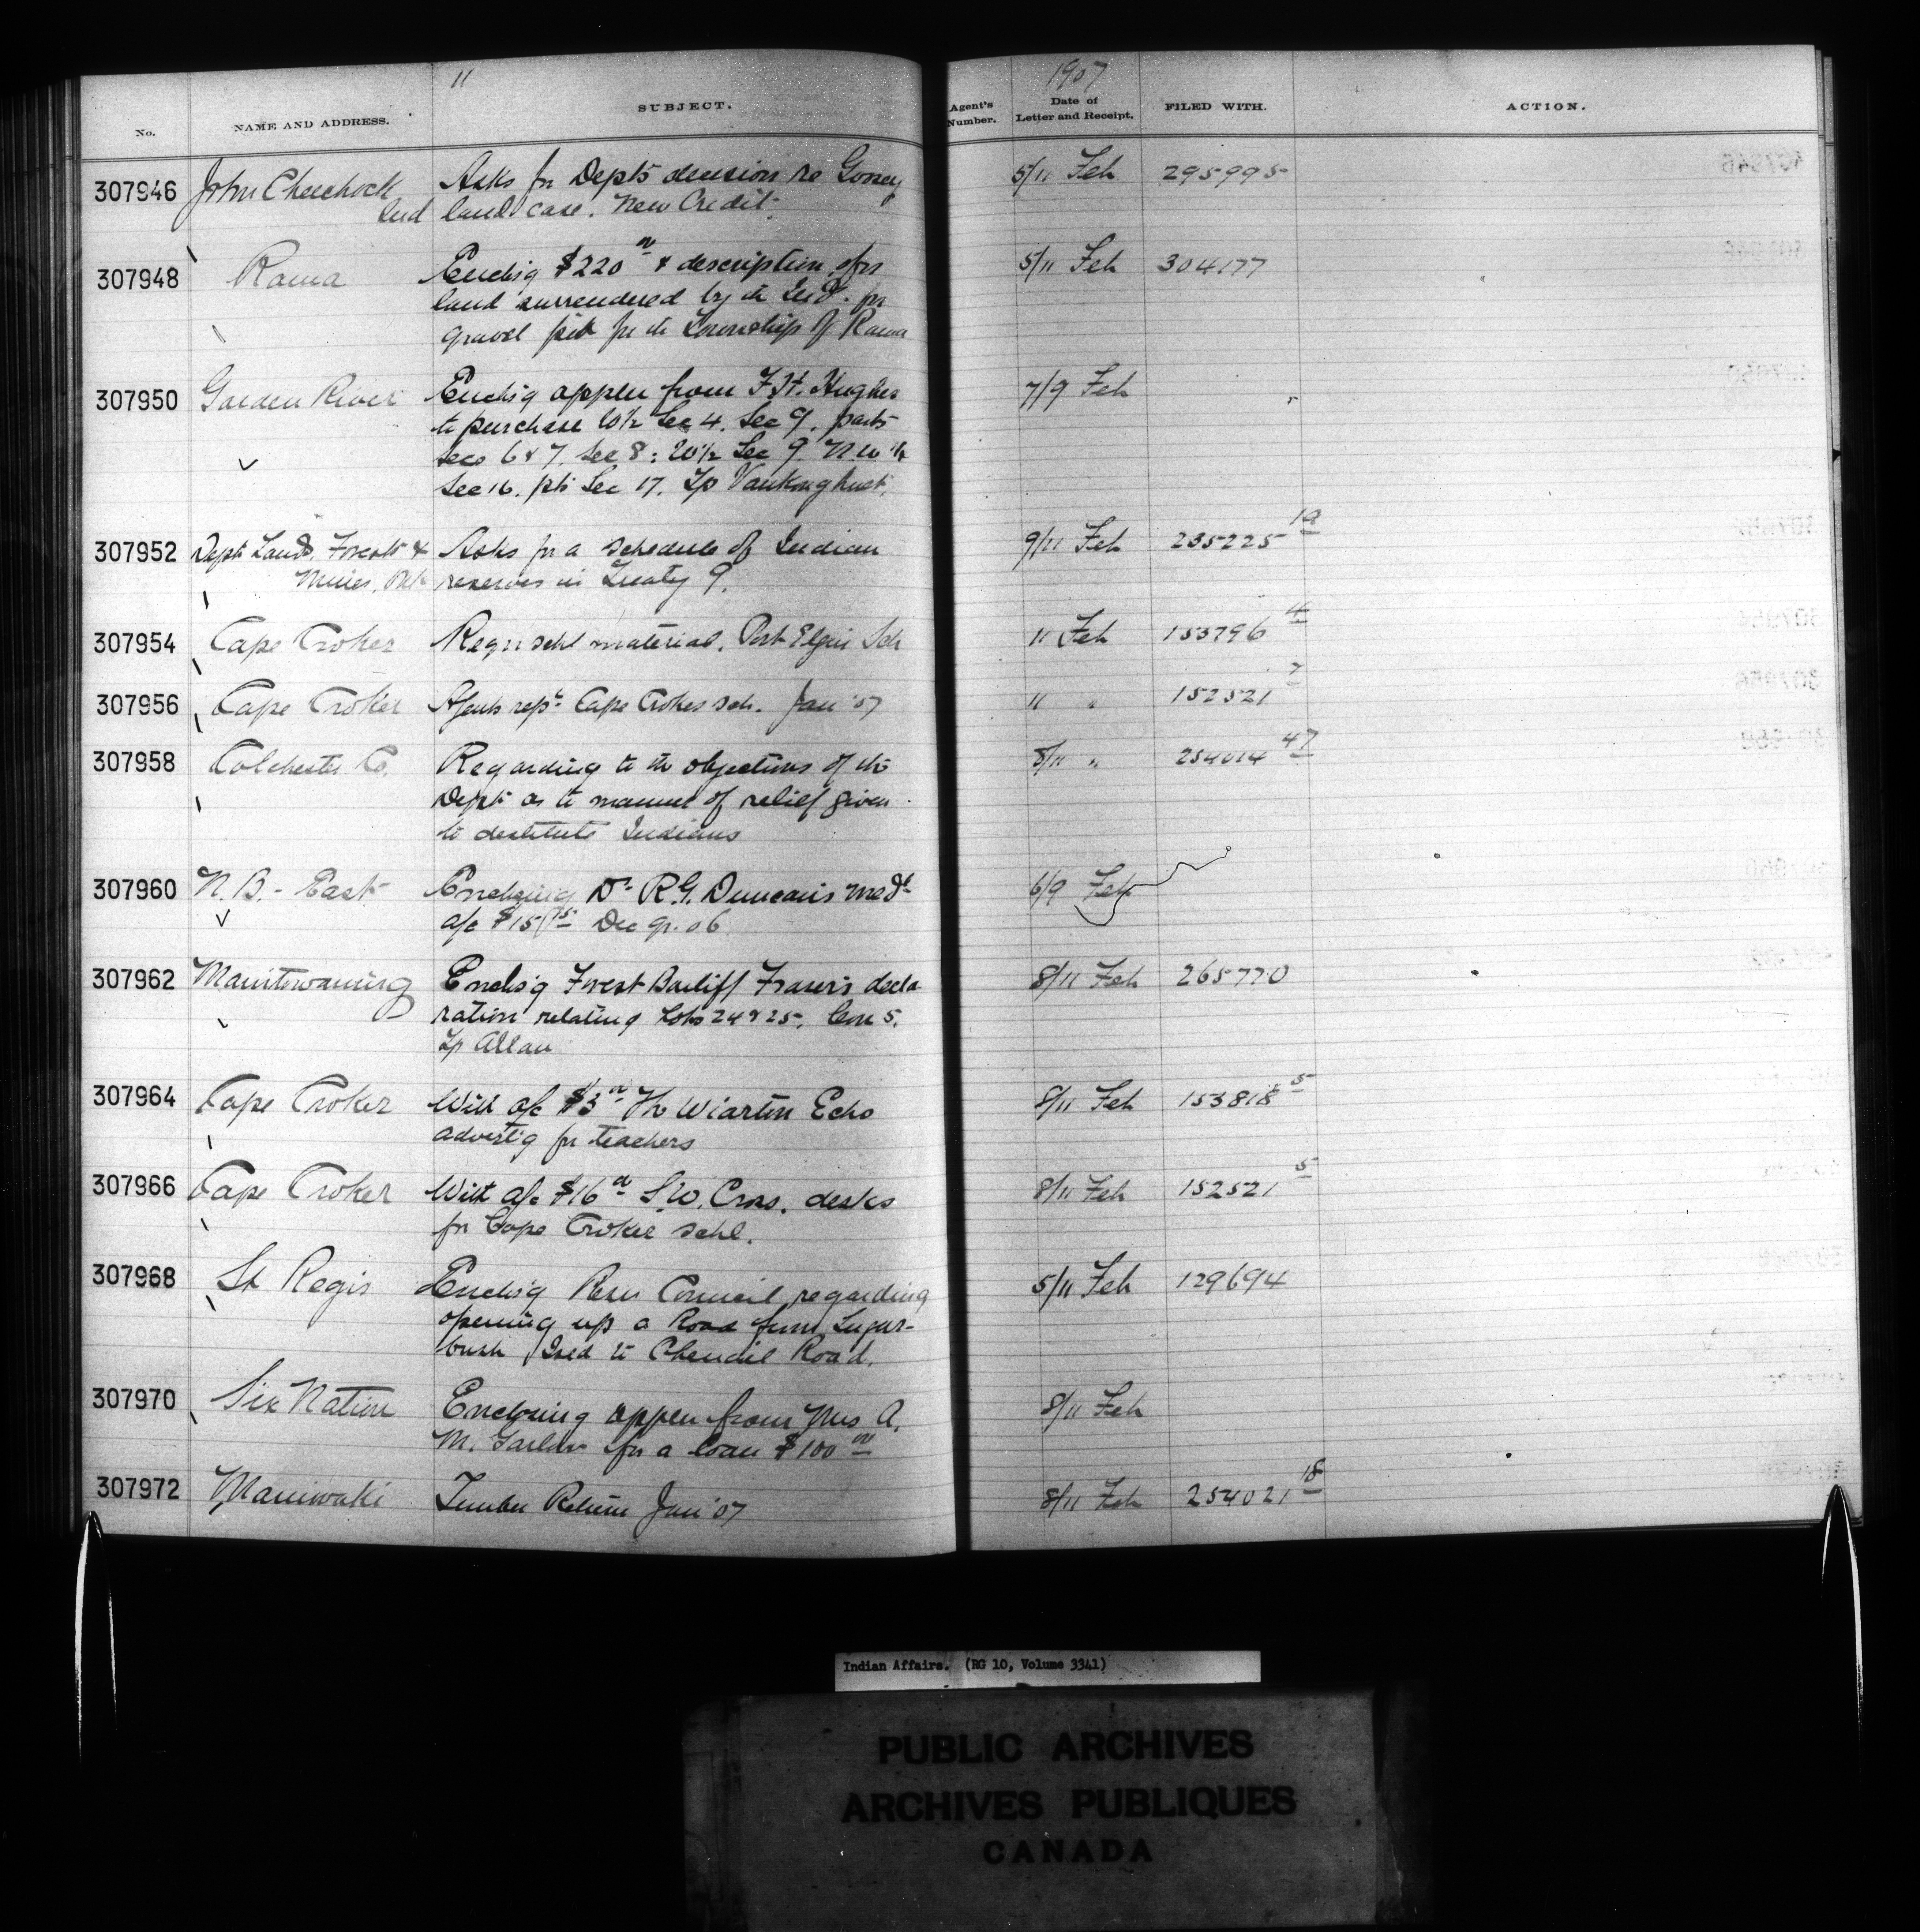 11
1907
No. NAME AND ADDRESS. SUBJECT. Agent's Number. Date of Letter and Receipt. FILED WITH. ACTION.
307946 John Chechock Asks for Depts decision re 5/11 Feb 295995
Ind land case. New Credit.
307948 Rama Enclsg $220 00 & description of land surrendered by the Inds. for 5/11 Feb 304177
gravel pit for the Township of Rama
307950 Garden River Enclsg appln from F. H. Hughes 7/9 Feb
to purchase W½ Sec 4. Sec 9. parts
Secs 6 & 7. Sec 8; W½ Sec 9. N.W ¼
Sec 16. pts Sec 17. Tp Vankoughnet.
307952 Dept Lands, Forests & Asks for a schedule of Indian 9/11 Feb 235225 19
Mines, reserves in Treaty 9.
307954 Cape Croker Reqn schl material. Port Elgin Sch 11 Feb 153796 4
307956 Cape Croker Agents rept Cape Croker sch. Jan '07 11 " 152521 7
307958 Colchester Co. Regarding to the objections of the 8/11 " 254014 47
Dept as to manner of relief given
to destitute Indians
307960 N.B. - East Enclosing Dr R.G. Duncan's Med 6/9 Feb
a/c Dec qr. 06
307962 Manitowaning Enclsg Forest Bailiff Fraser's decla- 8/11 Feb 265770
ration relating Lots 24 & 25, Con 5.
Tp Allan
307964 Cape Croker With a/c $3 00 The Wiarton Echo 8/11 Feb 153818 5
advertsg for teachers
307966 Cape Croker With a/c $16 00 S.W. Cross. desks 8/11 Feb 152521 5
for Cape Croker schl.
307968 St Regis Enclsg Resn Council regarding 5/11 Feb 129694
opening up a Road from Sugar-
bush Road.
307970 Six Nation Enclosing appln from Mrs A. 8/11 Feb
M. for a loan $100 00
307972 Maniwaki Timber Return Jan '07 8/11 Feb 254021 18
Indian Affairs. (RG 10, Volume 3341)
PUBLIC ARCHIVES
ARCHIVES PUBLIQUES
CANADA